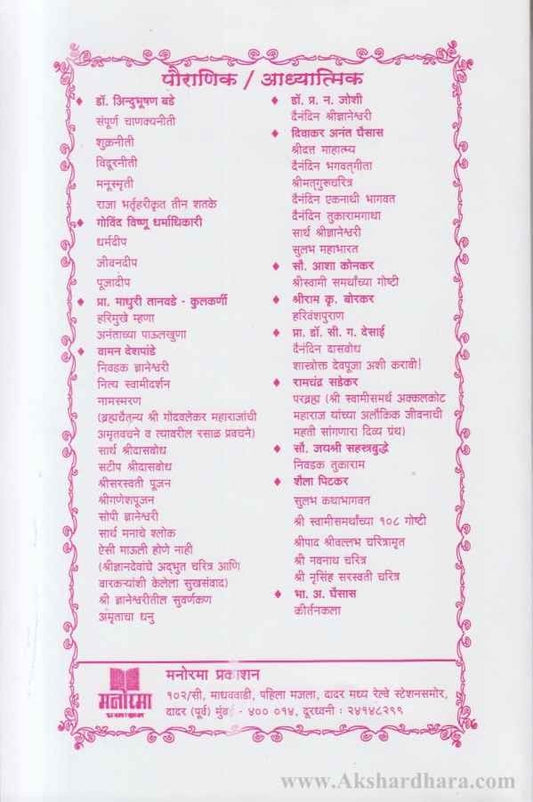 पौराणिक / आध्यात्मिक
♦ डॉ. इन्दुभूषण बडे
संपूर्ण चाणक्यनीती
शुक्रनीती
विदूरनीती
मनूस्मृती
राजा भर्तृहरीकृत तीन शतके
♦ गोविंद विष्णू धर्माधिकारी
धर्मदीप
जीवनदीप
पूजादीप
♦ प्रा. माधुरी तानवडे - कुलकर्णी
हरिमुखे म्हणा
अनंताच्या पाऊलखुणा
♦ वामन देशपांडे
निवडक ज्ञानेश्वरी
नित्य स्वामीदर्शन
नामस्मरण
(ब्रह्मचैतन्य श्री गोंदवलेकर महाराजांची
अमृतवचने व त्यावरील रसाळ प्रवचने)
सार्थ श्रीदासबोध
सटीप श्रीदासबोध
श्रीसरस्वती पूजन
श्रीगणेशपूजन
सोपी ज्ञानेश्वरी
सार्थ मनाचे श्लोक
ऐसी माऊली होणे नाही
(श्रीज्ञानदेवांचे अद्भुत चरित्र आणि
वारकऱ्यांशी केलेला सुखसंवाद)
श्री ज्ञानेश्वरीतील सुवर्णकण
अमृताचा धनु
♦ डॉ. प्र. न. जोशी
दैनंदिन श्रीज्ञानेश्वरी
♦ दिवाकर अनंत घैसास
श्रीदत्त माहात्म्य
दैनंदिन भगवतगीता
श्रीमतगुरुचरित्र
दैनंदिन एकनाथी भागवत
दैनंदिन तुकारामगाथा
सार्थ श्रीज्ञानेश्वरी
सुलभ महाभारत
♦ सौ. आशा कोनकर
श्रीस्वामी समर्थांच्या गोष्टी
♦ श्रीराम कृ. बोरकर
हरिवंशपुराण
♦ प्रा. डॉ. सी. ग. देसाई
दैनंदिन दासबोध
शास्त्रोक्त देवपूजा अशी करावी!
♦ रामचंद्र सडेकर
परब्रह्म (श्री स्वामीसमर्थ अक्कलकोट
महाराज यांच्या अलौकिक जीवनाची
महती सांगणारा दिव्य ग्रंथ)
♦ सौ. जयश्री सहस्त्रबुद्धे
निवडक तुकाराम
♦ शैला पिटकर
सुलभ कथाभागवत
श्री स्वामीसमर्थांच्या १०८ गोष्टी
श्रीपाद श्रीवल्लभ चरित्रामृत
श्री नवनाथ चरित्र
श्री नृसिंह सरस्वती चरित्र
♦ भा. अ. घैसास
कीर्तनकला
मनोरमा
मनोरमा प्रकाशन
१०२/सी, माधववाडी, पहिला मजला, दादर मध्य रेल्वे स्टेशनसमोर,
दादर (पूर्व) मुंबई - ४०० ०१४, दूरध्वनी : २४१४८२९९
www.Akshardhara.com